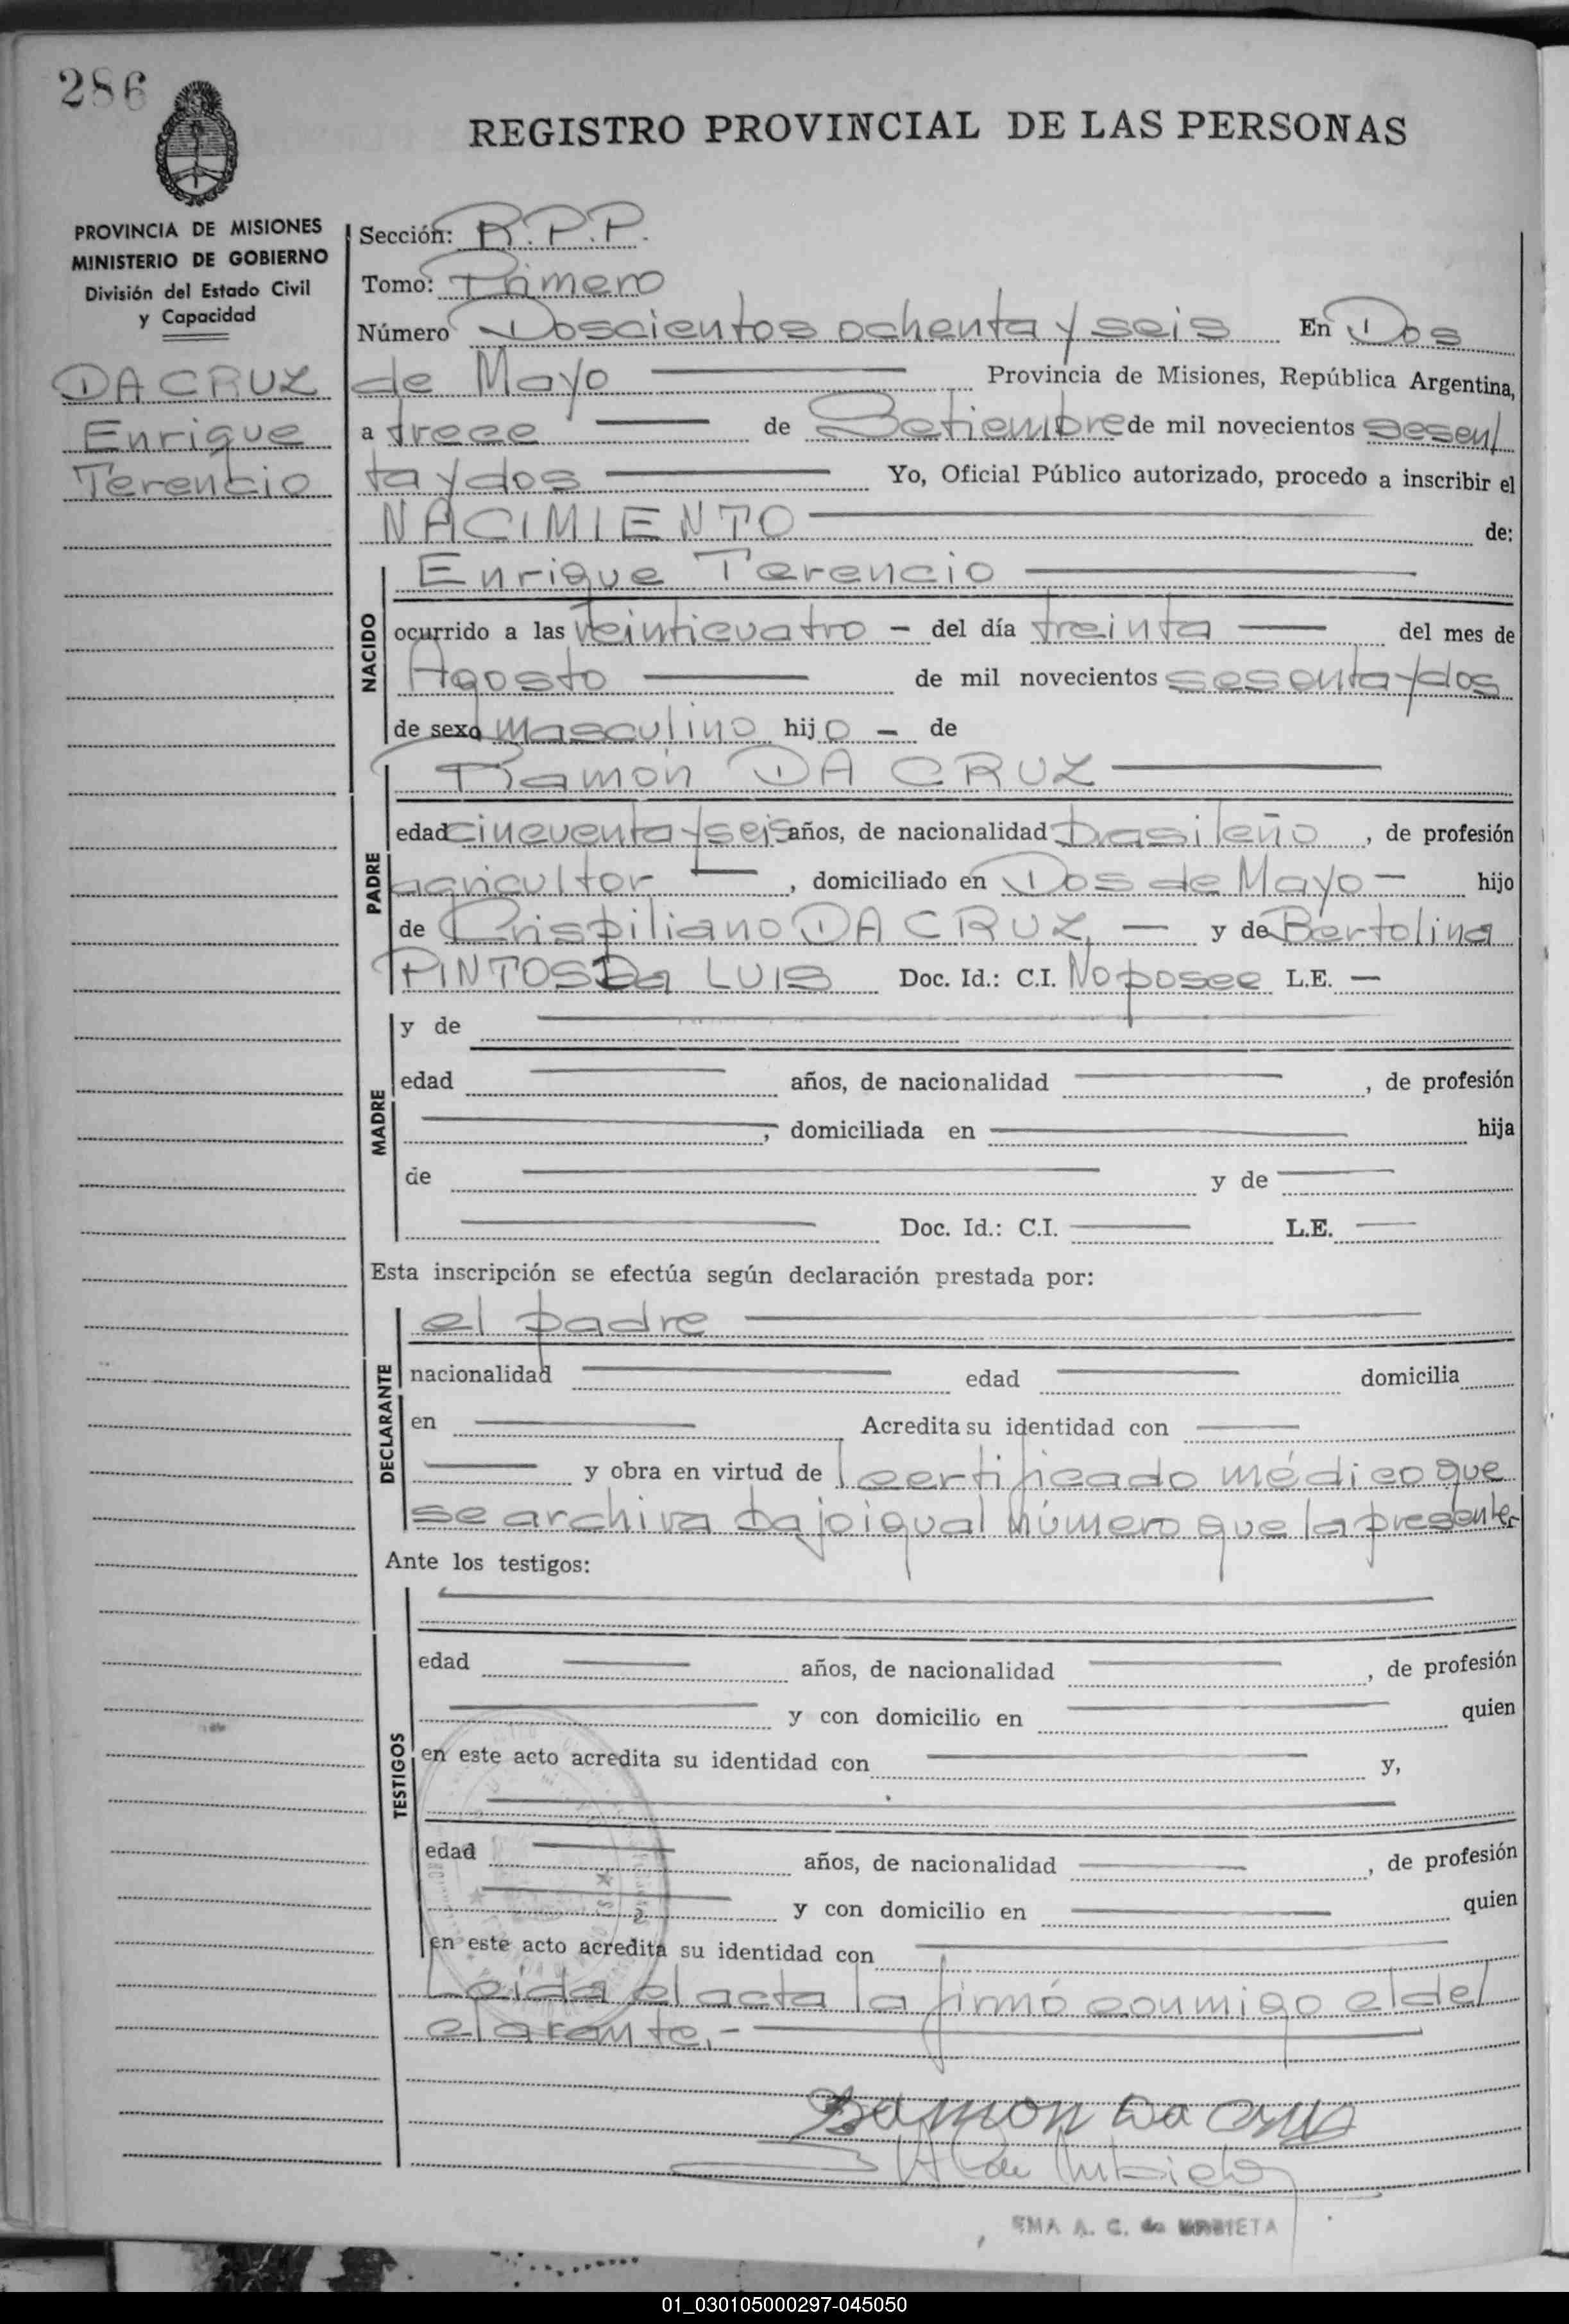 286
REGISTRO PROVINCIAL DE LAS PERSONAS
PROVINCIA DE MISIONES
MINISTERIO DE GOBIERNO
División del Estado Civil
y Capacidad
DA CRUZ
Enrique
Terencio
Sección: R.P.P.
Tomo: Primero
Número Doscientos ochenta y seis En Dos
de Mayo Provincia de Misiones, República Argentina,
a trece de Setiembre de mil novecientos sesen/
ta y dos Yo, Oficial Público autorizado, procedo a inscribir el
NACIMIENTO de:
NACIDO
Enrique Terencio
ocurrido a las veinticuatro - del día treinta del mes de
Agosto de mil novecientos sesenta y dos
de sexo masculino hijo - de
PADRE
Ramón DA CRUZ
edad cincuenta y seis años, de nacionalidad brasileño, de profesión
agricultor, domiciliado en Dos de Mayo - hijo
de Crispiliano DA CRUZ, - y de Bertolina
PINTOS Da LUIS Doc. Id.: C.I. No posee L.E. -
MADRE
y de
edad años, de nacionalidad , de profesión
, domiciliada en hija
de y de
Doc. Id.: C.I. L.E.
Esta inscripción se efectúa según declaración prestada por:
DECLARANTE
el padre
nacionalidad edad domicilia
en Acredita su identidad con
y obra en virtud de certificado médico que
se archiva bajo igual número que la presente
Ante los testigos:
TESTIGOS
edad años, de nacionalidad , de profesión
y con domicilio en quien
en este acto acredita su identidad con y,
edad años, de nacionalidad , de profesión
y con domicilio en quien
en este acto acredita su identidad con
Leida el acta la firmó conmigo el de/
clarante.-
Ramon Da Cruz
EMA A. C. de URBIETA
01_030105000297-045050